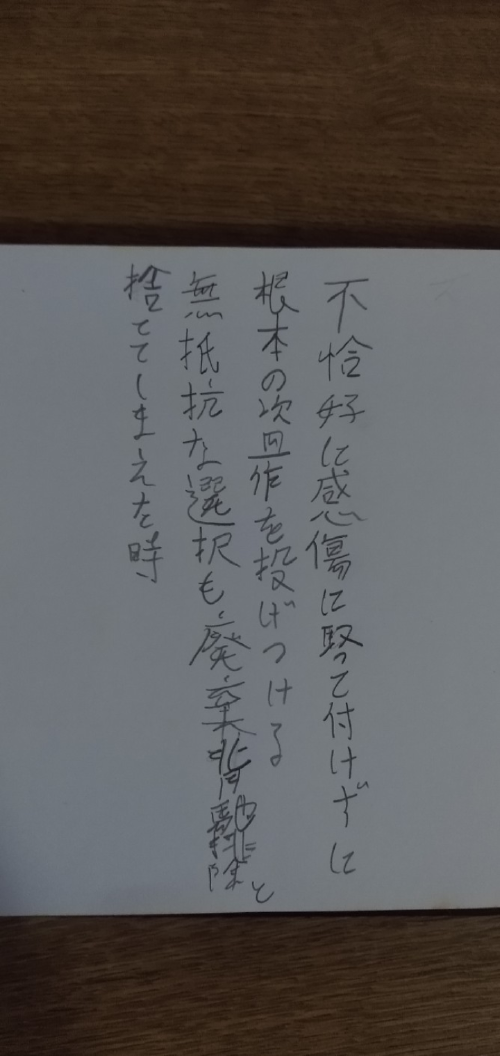 不恰好に感傷に取って付けずに
根本の次回作を投げつける
無抵抗な選択も廃棄背馳排除と
捨ててしまえた時